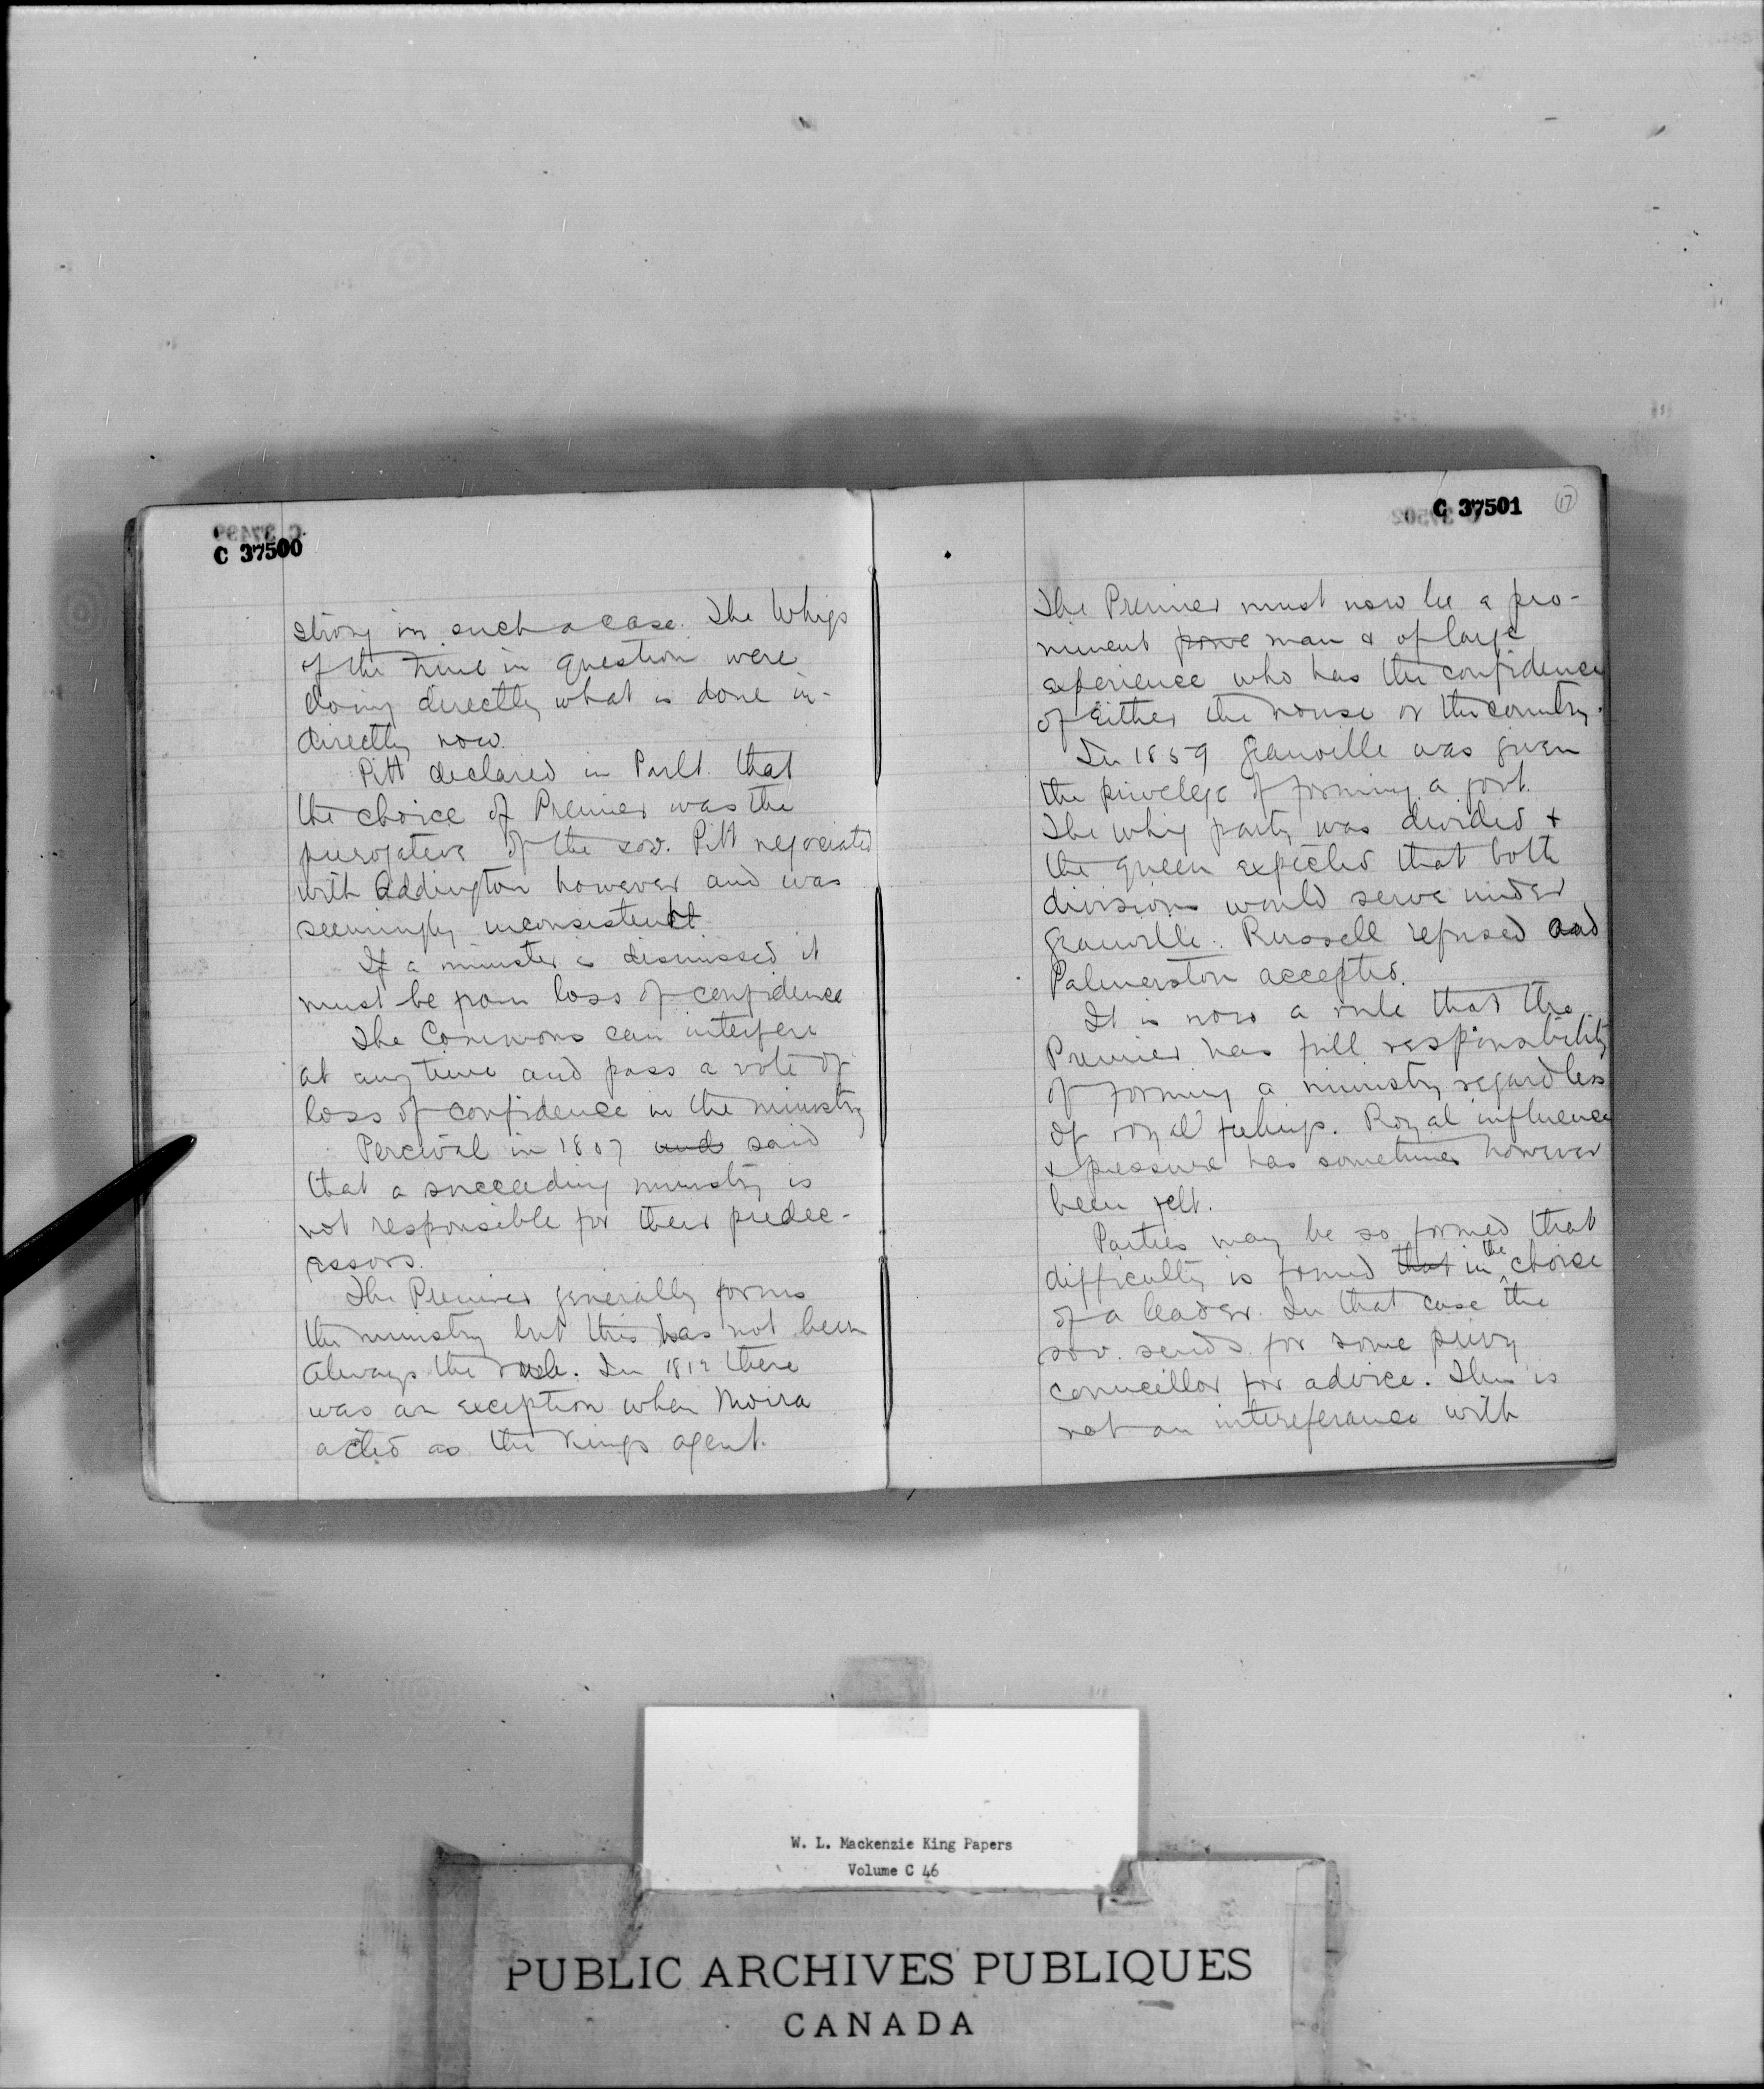 C 37500
strong in such a case. The Whigs
of the time in question were
doing directly what is done in-
directly now.
Pitt declared in Parlt. that
the choice of Premier was the
perogative of the sov. Pitt negociated
with Addington however and was
seemingly inconsistent
If a minister is dismissed it
must be from loss of confidence
The Commons can interfere
at any time and pass a vote of
loss of confidence in the ministry
Percival in 1807 and said
that a succeeding ministry is
not responsible for their predec-
essors.
The Premier generally forms
the ministry but this has not been
always the rule. In 1812 there
was an exception when Moira
acted as the Kings agent.
C 37501
17
The Premier must now be a pro-
minent man & of large
experience who has the confidence
of either the house or the country.
In 1859 Granville was given
the privelege of forming a govt.
The whig party was divided +
the queen expected that both
divisions would serve under
Granville. Russell refused and
Palmerston accepted.
It is now a rule that the
Premier has full responsibility
of forming a ministry regardless
of royal feelings. Royal influence
& pressure has sometimes however
been felt.
Parties may be so formed that
difficulty is found that in the choice
of a leader. In that case the
sov. sends for some privy
councillor for advice. This is
not an intereferance with
W. L. Mackenzie King Papers
Volume C 46
PUBLIC ARCHIVES PUBLIQUES
CANADA